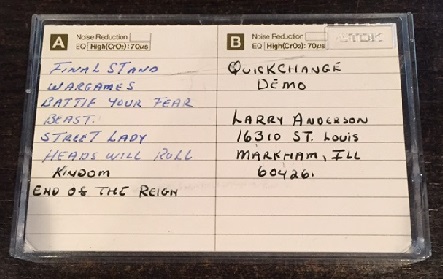 A
Noise Reduction
EQ High(CrO₂): 70μs
FINAL STAND
WARGAMES
BATTLE YOUR FEAR
BEAST
STREET LADY
HEADS WILL ROLL
KINDOM
END OF THE REIGN
B
Noise Reduction
EQ High(CrO₂): 70μs
TDK
QUICKCHANGE
DEMO
LARRY ANDERSON
16310 ST. LOUIS
MARKHAM, ILL
60426